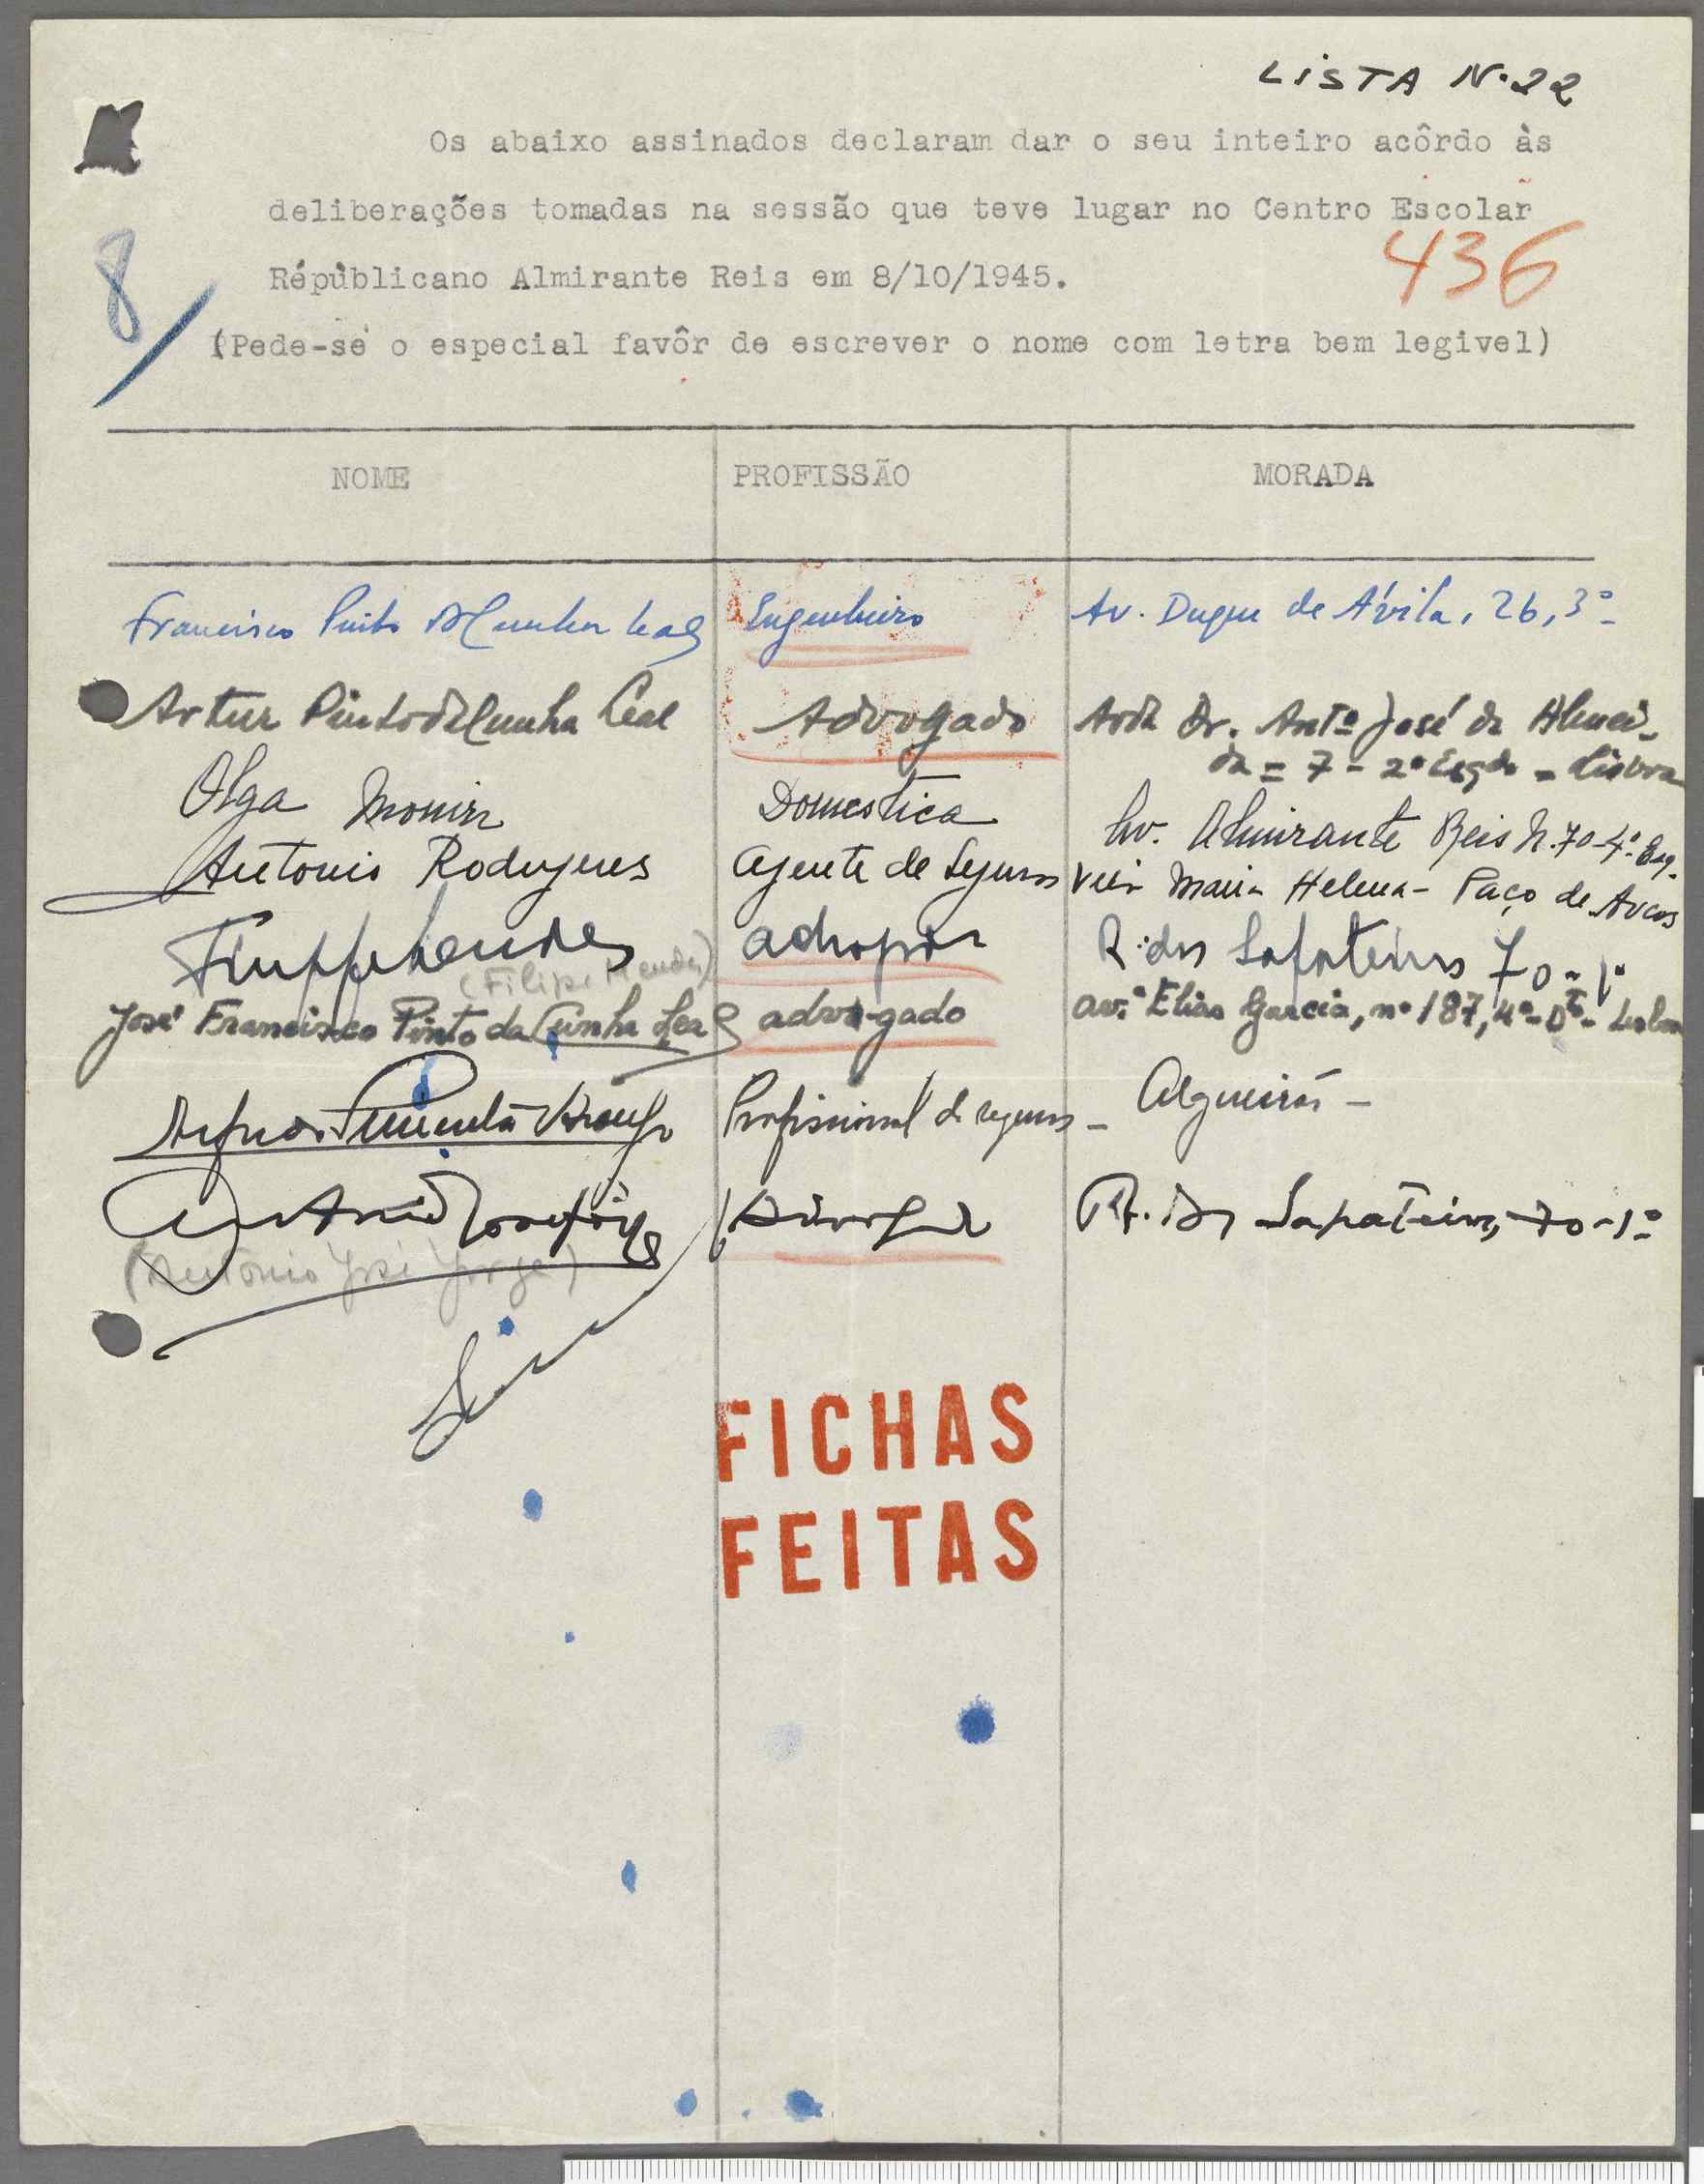 LISTA Nº 22
Os abaixo assinados declaram dar o seu inteiro acôrdo às
deliberações tomadas na sessão que teve lugar no Centro Escolar
Républicano Almirante Reis em 8/10/1945.
436
8/
(Pede-se o especial favôr de escrever o nome com letra bem legivel)
NOME PROFISSÃO MORADA
Francisco Pinto da Cunha Leal Engenheiro Av. Duque de Ávila, 26, 3º
Artur Pinto da Cunha Leal Advogado Avda Dr. Antº José de Almei-
da = 7 - 2º Esqdo = Lisboa
Olga Domestica Av. Almirante Reis N. 70-4º Esq.
Antonio Rodrigues Agente de Seguros Maria Helena - Paço de Arcos
Filipe Mendes advogado R. dos Sapateiros 70-1º
(Filipe Mendes)
José Francisco Pinto da Cunha Leal advogado av.ª Elias Garcia, nº 187, 4º-Dto- Lisboa
Pimenta Araujo Profissional de seguros - Algueirão -
António José Jorge Advogado R. dos Sapateiros, 70-1º
(António José Jorge)
FICHAS
FEITAS